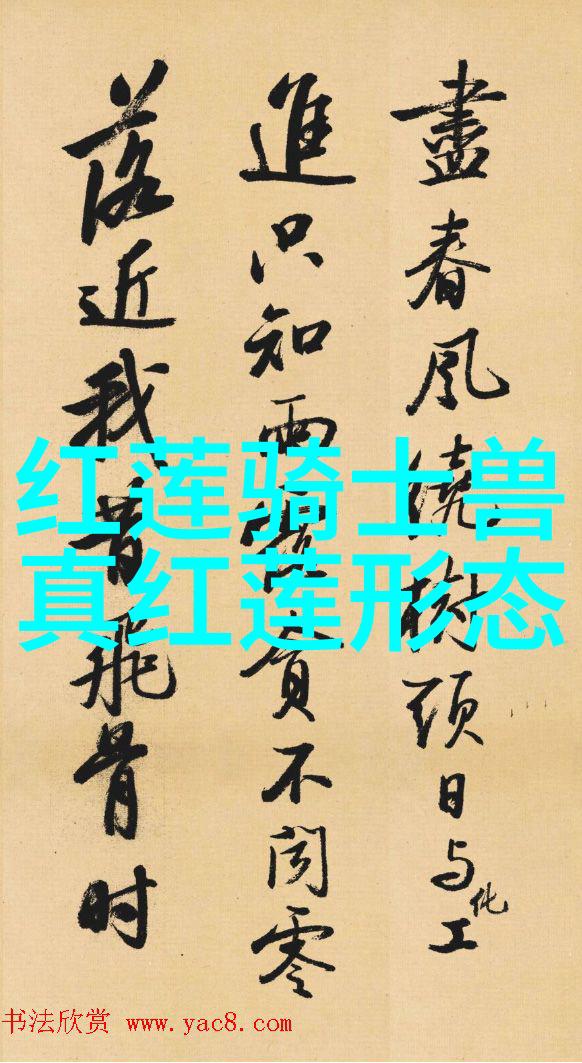 盡春風繞樹頭日与化工
進只知雨露貪不聞零
落近我昔飛骨时
红莲骑士兽
真红莲形态
书法欣赏 www.yac8.com